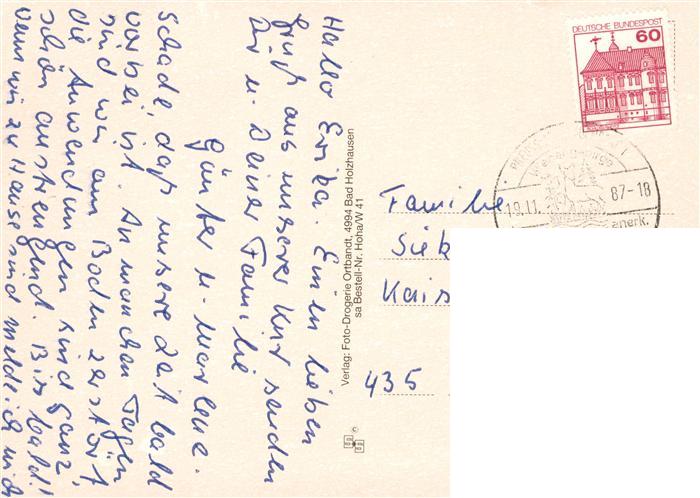 Hallo Erika. Einen lieben
Gruß aus unserer Kur senden
Dir u. Deiner Familie
Günter u. Marlene.
Schade, daß unsere Zeit bald
vorbei ist. An manchen Tagen
sind wir am Boden zerstört,
die Anwendungen sind ganz
schön anstrengend. Bis bald!
wenn wir zu Hause sind melde ich mich
Verlag: Foto-Drogerie Ortbandt, 4994 Bad Holzhausen
sa Bestell-Nr. Hoha/W 41
DEUTSCHE BUNDESPOST
60
19.11.
87-18
Familie
Siek
Kais
435